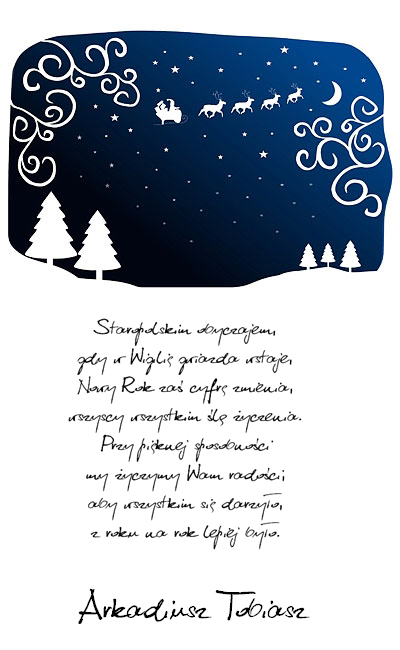 Staropolskim obyczajem,
gdy w Wigilię gwiazda wstaje,
Nowy Rok zaś cyfrę zmienia,
wszyscy wszystkim ślą życzenia.
Przy pięknej sposobności
my życzymy Wam radości,
aby wszystkim się darzyło,
z roku na rok lepiej było.
Arkadiusz Tobiasz